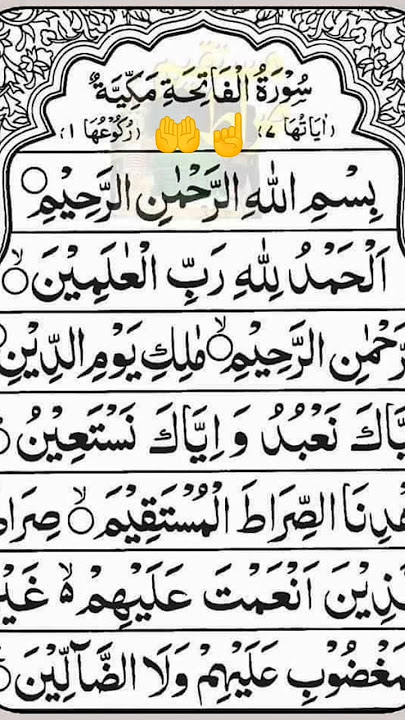 سُوْرَةُ الْفَاتِحَةِ مَكِّيَّةٌ
اٰيَاتُهَا ٧ رُكُوْعُهَا ١
بِسْمِ اللّٰهِ الرَّحْمٰنِ الرَّحِيْمِ
اَلْحَمْدُ لِلّٰهِ رَبِّ الْعٰلَمِيْنَ
رَّحْمٰنِ الرَّحِيْمِ مٰلِكِ يَوْمِ الدِّيْنِ
يَّاكَ نَعْبُدُ وَ اِيَّاكَ نَسْتَعِيْنُ
هْدِنَا الصِّرَاطَ الْمُسْتَقِيْمَ صِرَا
َّذِيْنَ اَنْعَمْتَ عَلَيْهِمْ ۵ غَيْ
مَغْضُوْبِ عَلَيْهِمْ وَلَا الضَّآلِّيْنَ